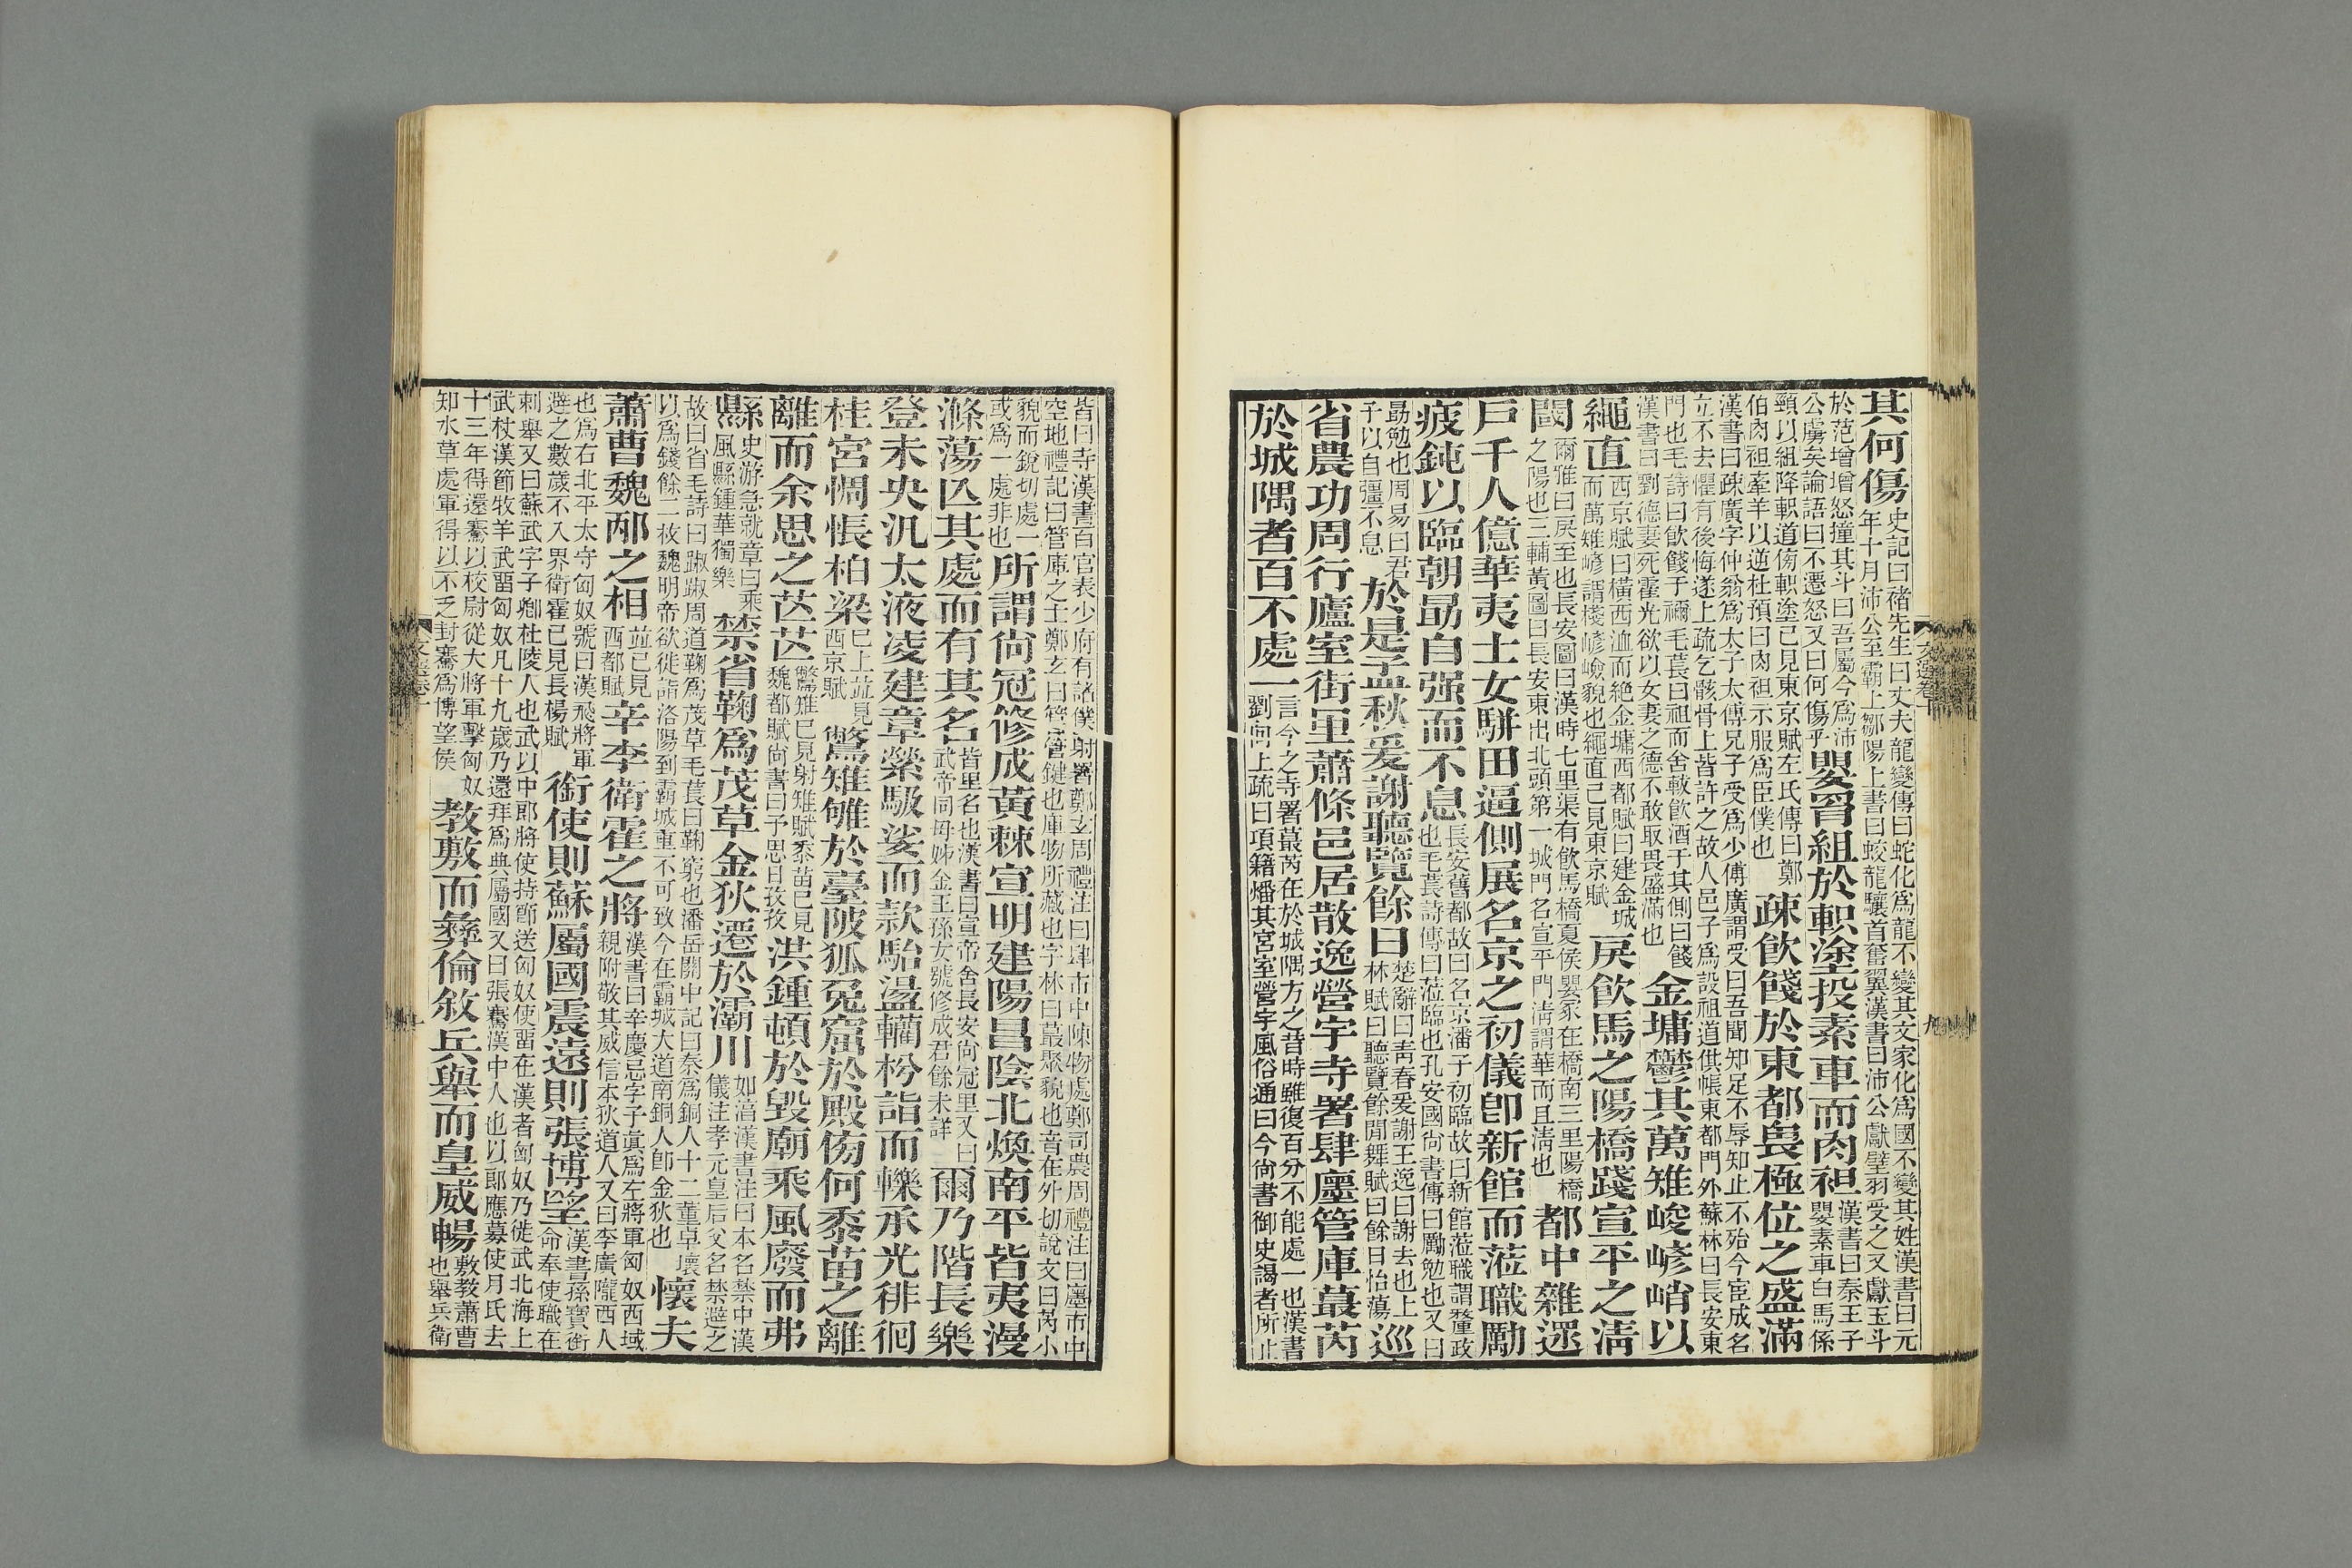 其何傷史記曰褚先生曰丈夫龍變傳曰蛇化爲龍不變其文家化爲國不變其姓漢書曰元年十月沛公至霸上鄒陽上書曰蛟龍驤首奮翼漢書曰沛公獻璧羽受之又獻玉斗
於范增增怒撞其斗曰吾屬今爲沛公虜矣論語曰不遷怒又曰何傷乎嬰罥組於軹塗投素車而肉袒漢書曰秦王子嬰素車白馬係
頸以組降軹道傍軹塗已見東京賦左氏傳曰鄭伯肉袒牽羊以逆杜預曰肉袒示服爲臣僕也疎飲餞於東都畏極位之盛滿
漢書曰疎廣字仲翁爲太子太傅兄子受爲少傅廣謂受曰吾聞知足不辱知止不殆今宦成名立不去懼有後悔遂上疏乞骸骨上皆許之故人邑子爲設祖道供帳東都門外蘇林曰長安東
門也毛詩曰飲餞于禰毛萇曰祖而舍軷飲酒于其側曰餞漢書曰劉德妻死霍光欲以女妻之德不敢取畏盛滿也金墉鬱其萬雉峻嵃峭以
繩直西京賦曰橫西洫而絕金墉西都賦曰建金城而萬雉嵃謂棧嵃嶮貌也繩直已見東京賦戾飲馬之陽橋踐宣平之淸
閾爾雅曰戾至也長安圖曰漢時七里渠有飲馬橋夏侯嬰冢在橋南三里陽橋之陽也三輔黃圖曰長安東出北頭第一城門名宣平門淸謂華而且淸也都中雜遝
戶千人億華夷士女駢田逼側展名京之初儀卽新館而蒞職勵
疲鈍以臨朝勗自强而不息長安舊都故曰名京潘子初臨故曰新館蒞職謂釐政也毛萇詩傳曰蒞臨也孔安國尙書傳曰勵勉也又曰
勗勉也周易曰君子以自彊不息於是孟秋爰謝聽覽餘日楚辭曰靑春爰謝王逸曰謝去也上林賦曰聽覽餘閒舞賦曰餘日怡蕩巡
省農功周行廬室街里蕭條邑居散逸營宇寺署肆廛管庫蕞芮
於城隅者百不處一言今之寺署蕞芮在於城隅方之昔時雖復百分不能處一也漢書劉向上疏曰項籍燔其宮室營宇風俗通曰今尙書御史謁者所止
皆曰寺漢書百官表少府有諸僕射署鄭玄周禮注曰肆市中陳物處鄭司農周禮注曰廛市中空地禮記曰管庫之士鄭玄曰管鍵也庫物所藏也字林曰蕞聚貌也音在外切說文曰芮小
貌而銳切處一或爲一處非也所謂尙冠修成黃棘宣明建陽昌陰北煥南平皆夷漫
滌蕩亾其處而有其名皆里名也漢書曰宣帝舍長安尙冠里又曰武帝同母姊金王孫女號修成君餘未詳爾乃階長樂
登未央汎太液凌建章縈馺娑而款駘盪轥枍詣而轢承光徘徊
桂宮惆悵柏梁巳上竝見西京賦驚雉雊於臺陂狐兔窟於殿傍何黍苗之離
離而余思之芒芒驚雉巳見射雉賦黍苗巳見魏都賦尙書曰予思日孜孜洪鍾頓於毀廟乘風廢而弗
縣史游急就章曰乘風縣鍾華獨樂禁省鞠爲茂草金狄遷於灞川如淳漢書注曰本名禁中漢儀注孝元皇后父名禁避之
故曰省毛詩曰踧踧周道鞠爲茂草毛萇曰鞠窮也潘岳關中記曰秦爲銅人十二董卓壞以爲錢餘二枚魏明帝欲徙詣洛陽到霸城重不可致今在霸城大道南銅人卽金狄也懷夫
蕭曹魏邴之相竝已見西都賦辛李衛霍之將漢書曰辛慶忌字子眞爲左將軍匈奴西域親附敬其威信本狄道人又曰李廣隴西人
也爲右北平太守匈奴號曰漢飛將軍避之數歲不入界衛霍已見長楊賦銜使則蘇屬國震遠則張博望漢書孫寶銜命奉使職在
刺舉又曰蘇武字子卿杜陵人也武以中郎將使持節送匈奴使畱在漢者匈奴乃徙武北海上武杖漢節牧羊武畱匈奴凡十九歲乃還拜爲典屬國又曰張騫漢中人也以郎應募使月氏去
十三年得還騫以校尉從大將軍擊匈奴知水草處軍得以不乏封騫爲博望侯教敷而彝倫敘兵舉而皇威暢敷教蕭曹也舉兵衛